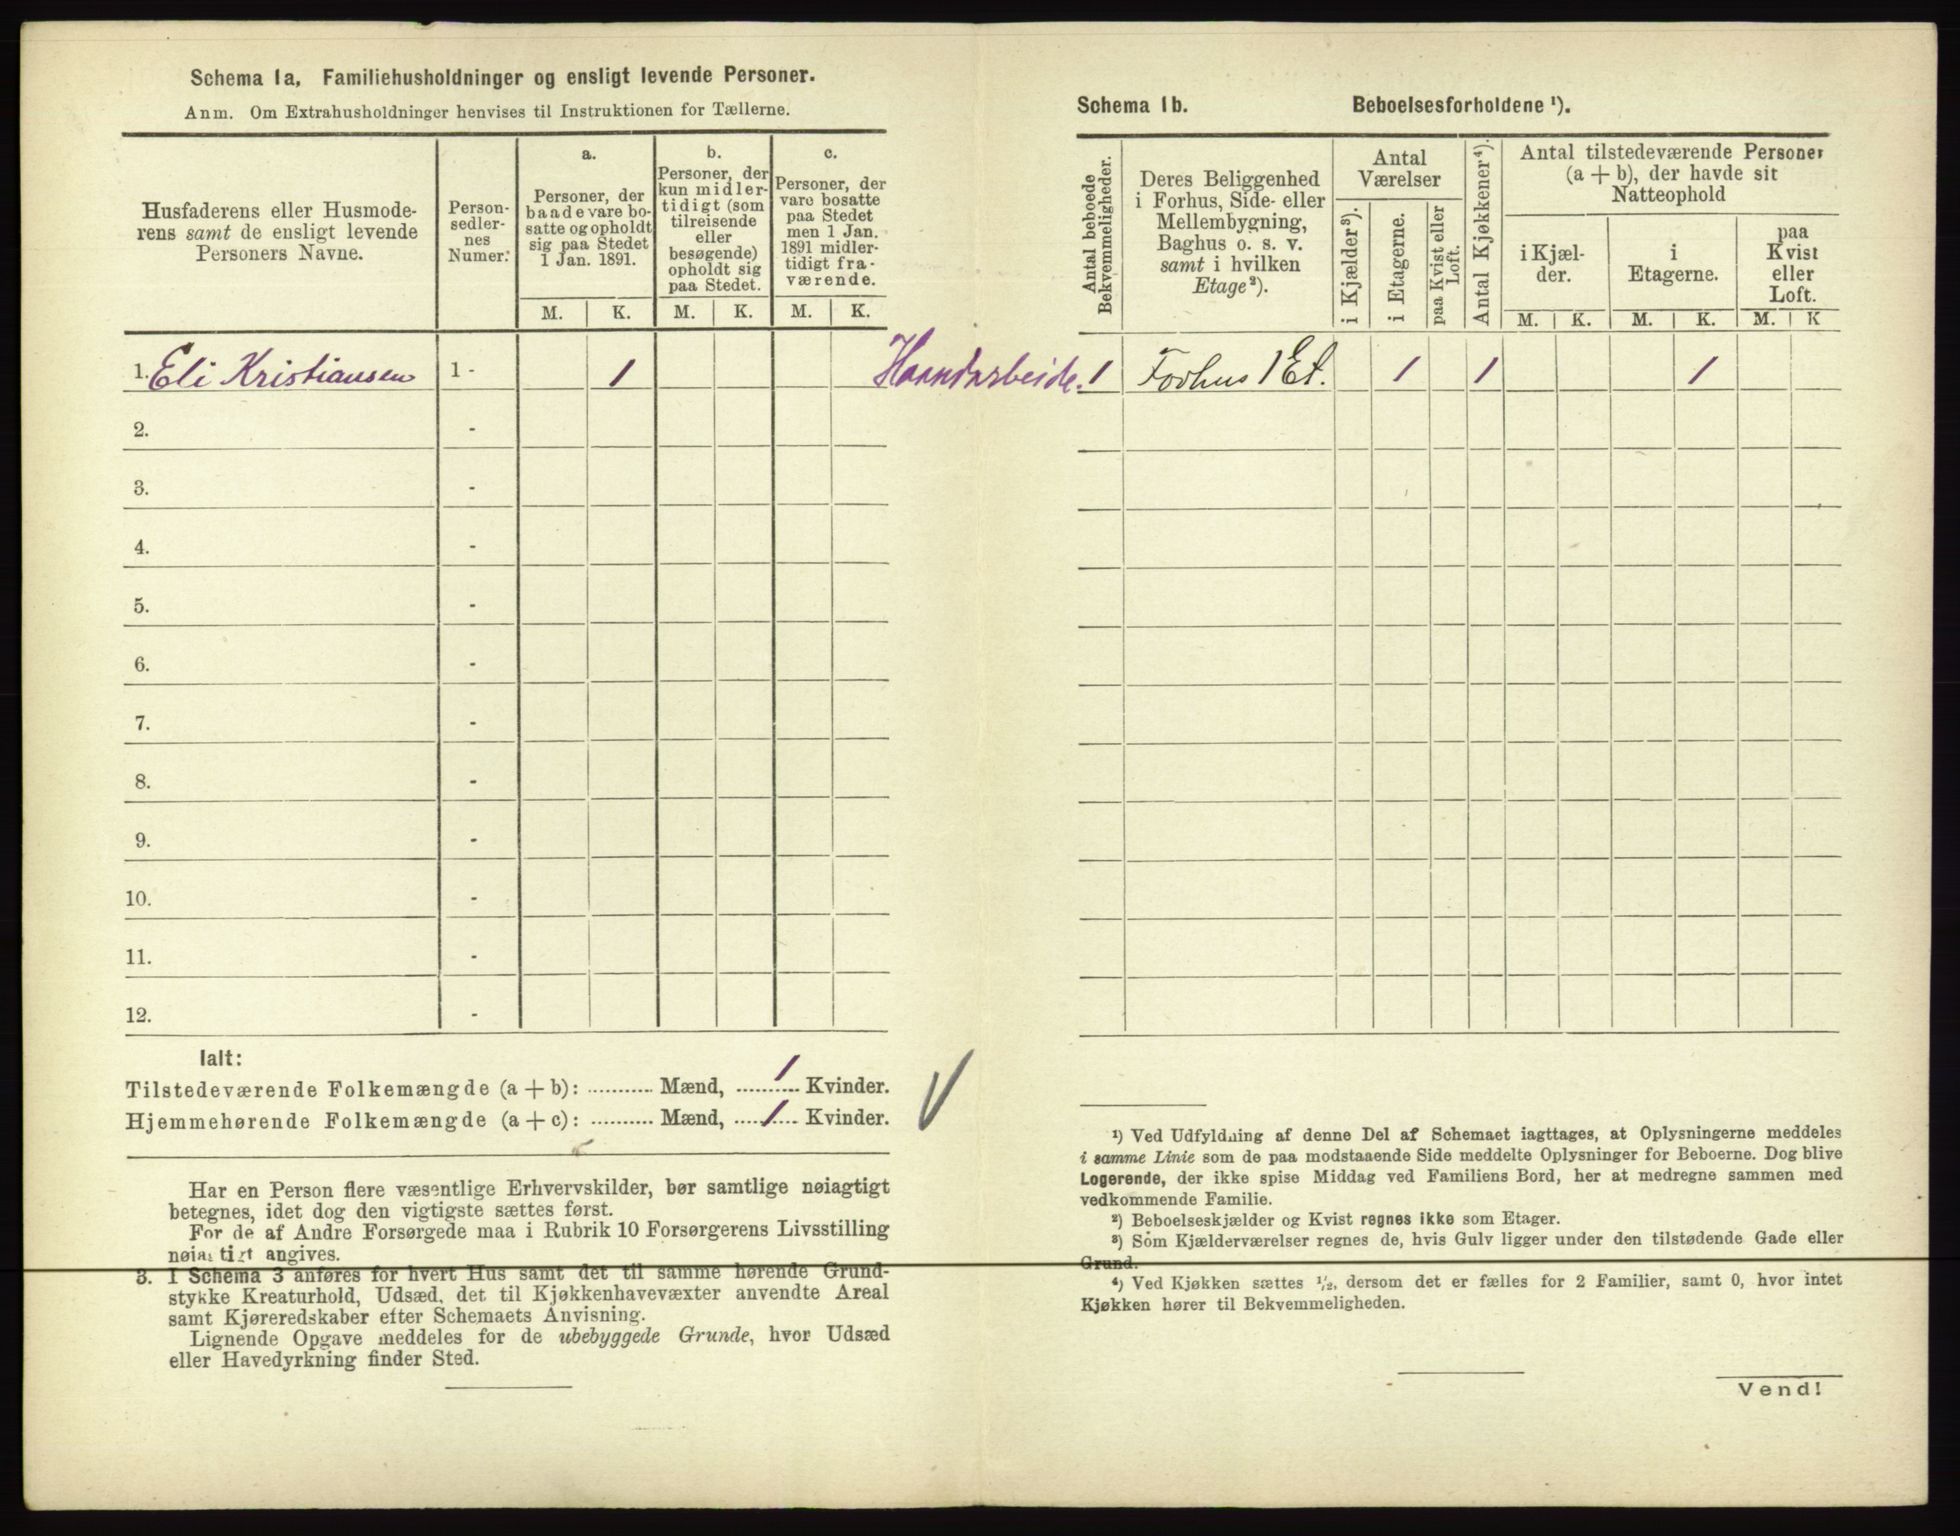 Schema 1a, Familiehusholdninger og ensligt levende Personer.
Anm. Om Extrahusholdninger henvises til Instruktionen for Tællerne.
Husfaderens eller Husmode-
rens samt de ensligt levende
Personers Navne.
Person-
sedler-
nes
Numer.
a.
Personer, der
baade vare bo-
satte og opholdt
sig paa Stedet
1 Jan. 1891.
b.
Personer, der
kun midler-
tidigt (som
tilreisende
eller
besøgende)
opholdt sig
paa Stedet.
c.
Personer, der
vare bosatte
paa Stedet
men 1 Jan.
1891 midler-
tidigt fra-
værende.
M. K. M. K. M. K.
1. Eli Kristiansen 1 - 1 Haandarbeide.
2. -
3. -
4. -
5. -
6. -
7. -
8. -
9. -
10. -
11. -
12. -
Ialt:
Tilstedeværende Folkemængde (a + b): ........... Mænd, 1 Kvinder.
Hjemmehørende Folkemængde (a + c): ........... Mænd, 1 Kvinder.
Har en Person flere væsentlige Erhvervskilder, bør samtlige nøiagtigt
betegnes, idet dog den vigtigste sættes først.
For de af Andre Forsørgede maa i Rubrik 10 Forsørgerens Livsstilling
nøiagtigt angives.
3. I Schema 3 anføres for hvert Hus samt det til samme hørende Grund-
stykke Kreaturhold, Udsæd, det til Kjøkkenhavevæxter anvendte Areal
samt Kjøreredskaber efter Schemaets Anvisning.
Lignende Opgave meddeles for de ubebyggede Grunde, hvor Udsæd
eller Havedyrkning finder Sted.
Schema 1b. Beboelsesforholdene ¹).
Antal beboede
Bekvemmeligheder.
Deres Beliggenhed
i Forhus, Side- eller
Mellembygning,
Baghus o. s. v.
samt i hvilken
Etage²).
Antal
Værelser
i Kjælder³).
i Etagerne.
paa Kvist eller
Loft.
Antal Kjøkkener⁴).
Antal tilstedeværende Personer
(a + b), der havde sit
Natteophold
i Kjæl-
der.
i
Etagerne.
paa
Kvist
eller
Loft.
M. K. M. K. M. K
1 Forhus 1 Et. 1 1 1
¹) Ved Udfyldning af denne Del af Schemaet iagttages, at Oplysningerne meddeles
i samme Linie som de paa modstaaende Side meddelte Oplysninger for Beboerne. Dog blive
Logerende, der ikke spise Middag ved Familiens Bord, her at medregne sammen med
vedkommende Familie.
²) Beboelseskjælder og Kvist regnes ikke som Etager.
³) Som Kjælderværelser regnes de, hvis Gulv ligger under den tilstødende Gade eller
Grund.
⁴) Ved Kjøkken sættes ¹/₂, dersom det er fælles for 2 Familier, samt 0, hvor intet
Kjøkken hører til Bekvemmeligheden.
Vend!